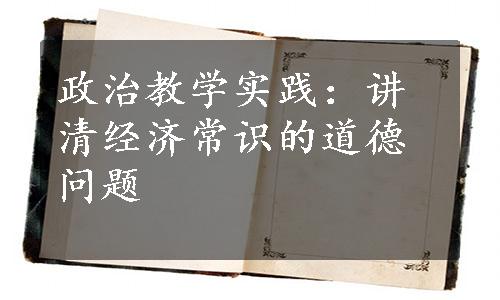 政治教学实践：讲
清经济常识的道德
问题